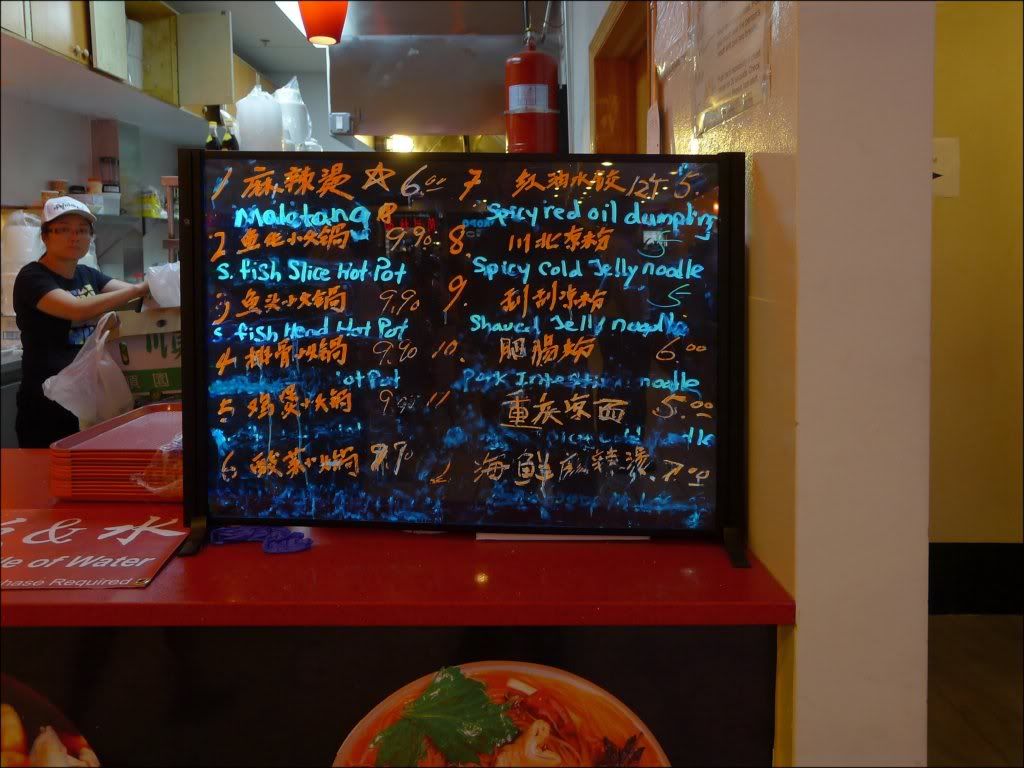 1 麻辣烫 ☆ 6.00
Malatang
2 鱼片小火锅 9.90
S. fish Slice Hot Pot
3 鱼头小火锅 9.90
S. fish Head Hot Pot
4 排骨小火锅 9.90
ot Pot
5 鸡煲小火锅
6. 酸菜小火锅 9.90
7 红油水饺 12个 5
Spicy red oil dumpling
8. 川北凉粉 5
Spicy Cold Jelly noodle
9. 刮刮凉粉 5
Shaved Jelly noodle
10. 肥腸粉 6.00
Pork Intestin noodle
11 重庆凉面 5.00
海鲜麻辣烫 7.00
& 水
le of Water
hase Required